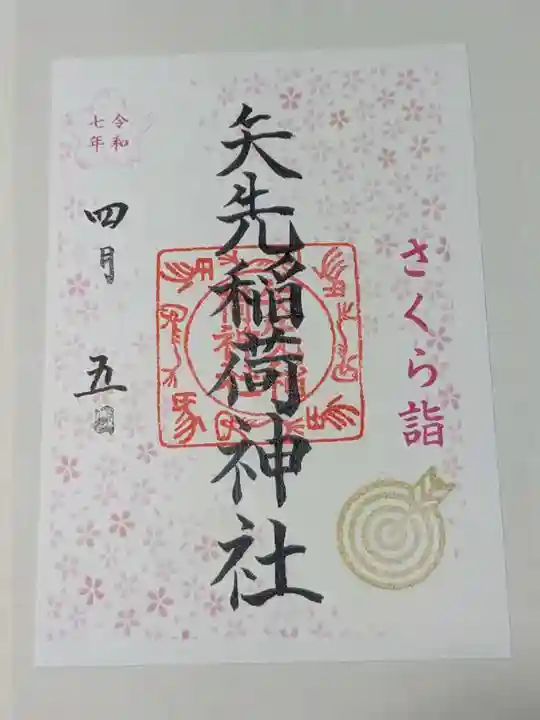 さくら詣
矢先稲荷神社
令和
七年
四月 五日